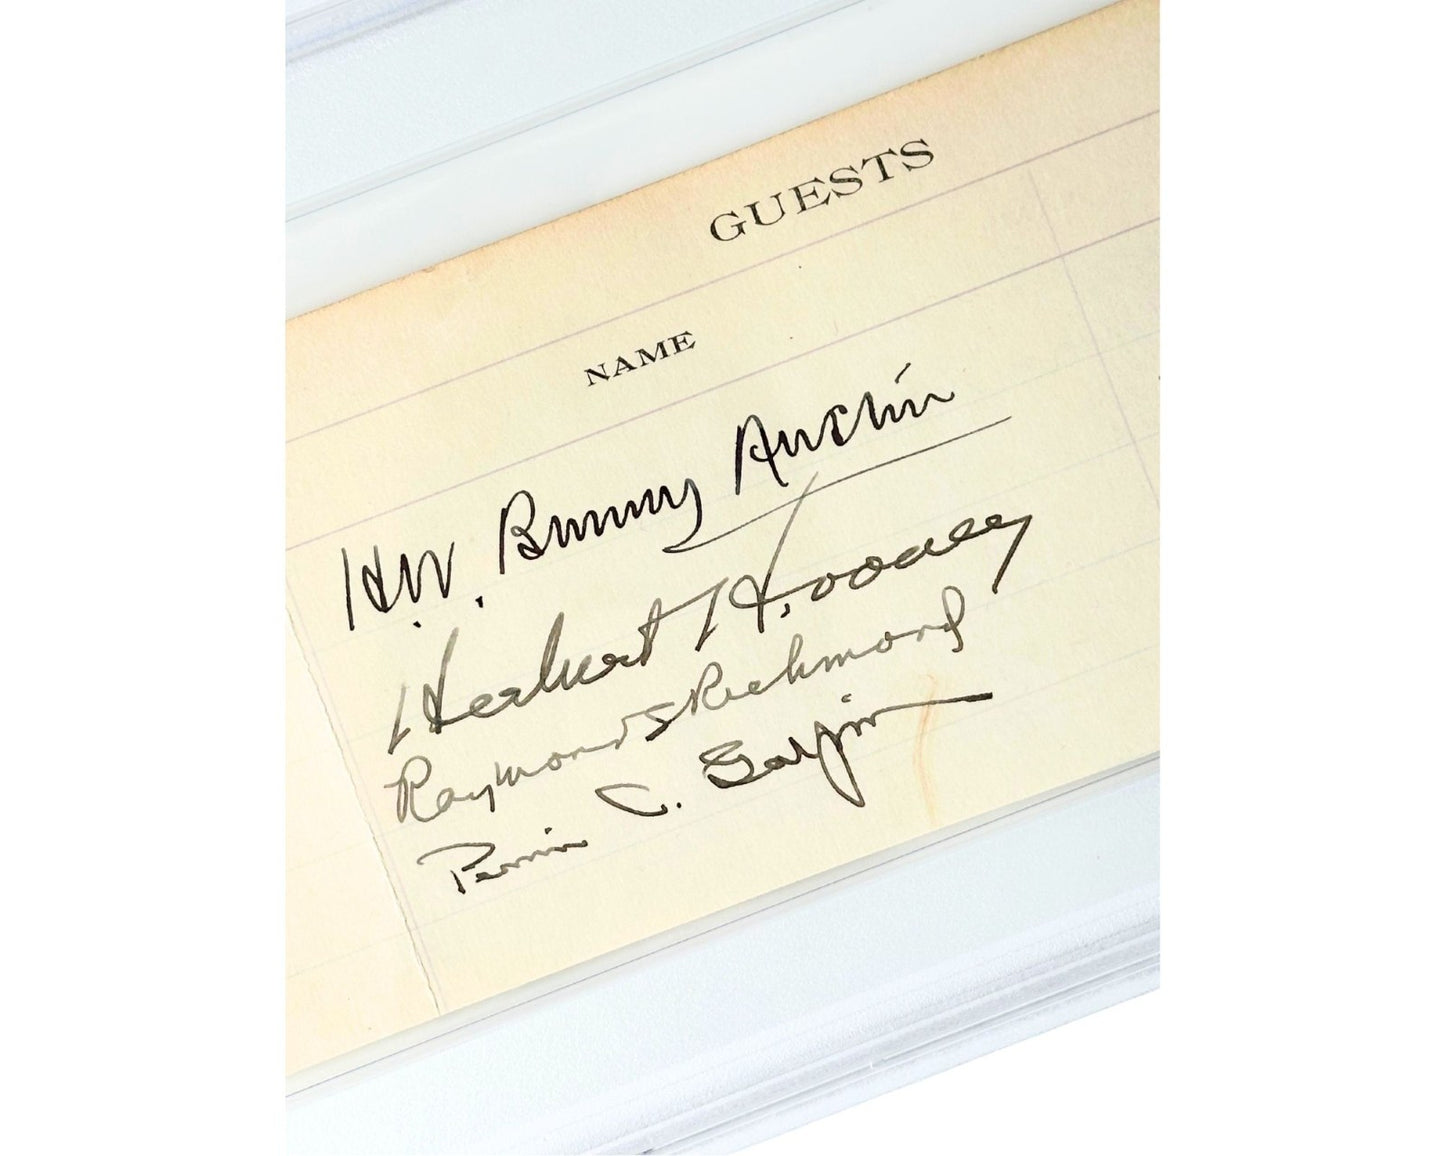 GUESTS
NAME
H.W. Bunny Austin
Herbert Hoover
Raymond Richmond
C.